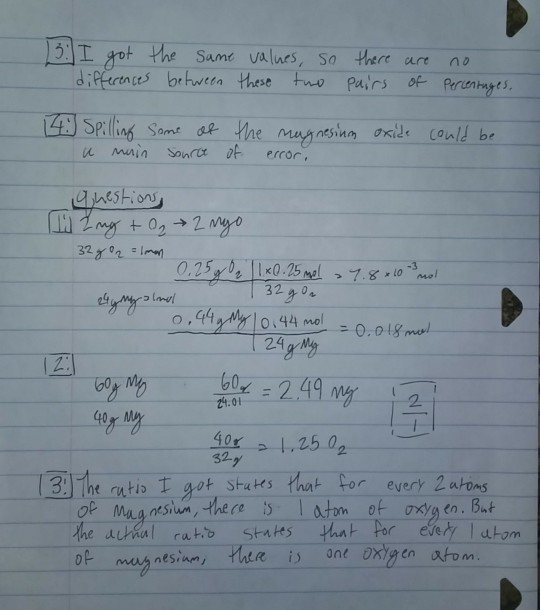 3: I got the same values, so there are no
differences between these two pairs of percentages.
4: Spilling some of the magnesium oxide could be
a main source of error.
Questions
1: 2 mg + O2 → 2 mgo
32g O2 = 1 mol
0.25g O2 | 1×0.25 mol = 7.8 × 10^-3 mol
32 g O2
24g Mg = 1 mol
0.44g Mg | 0.44 mol = 0.018 mol
24g Mg
2:
60g Mg 60g/24.01 = 2.49 mg 2/1
40g Mg
40g/32g = 1.25 O2
3: The ratio I got states that for every 2 atoms
of Magnesium, there is 1 atom of oxygen. But
the actual ratio states that for every 1 atom
of magnesium, there is one oxygen atom.